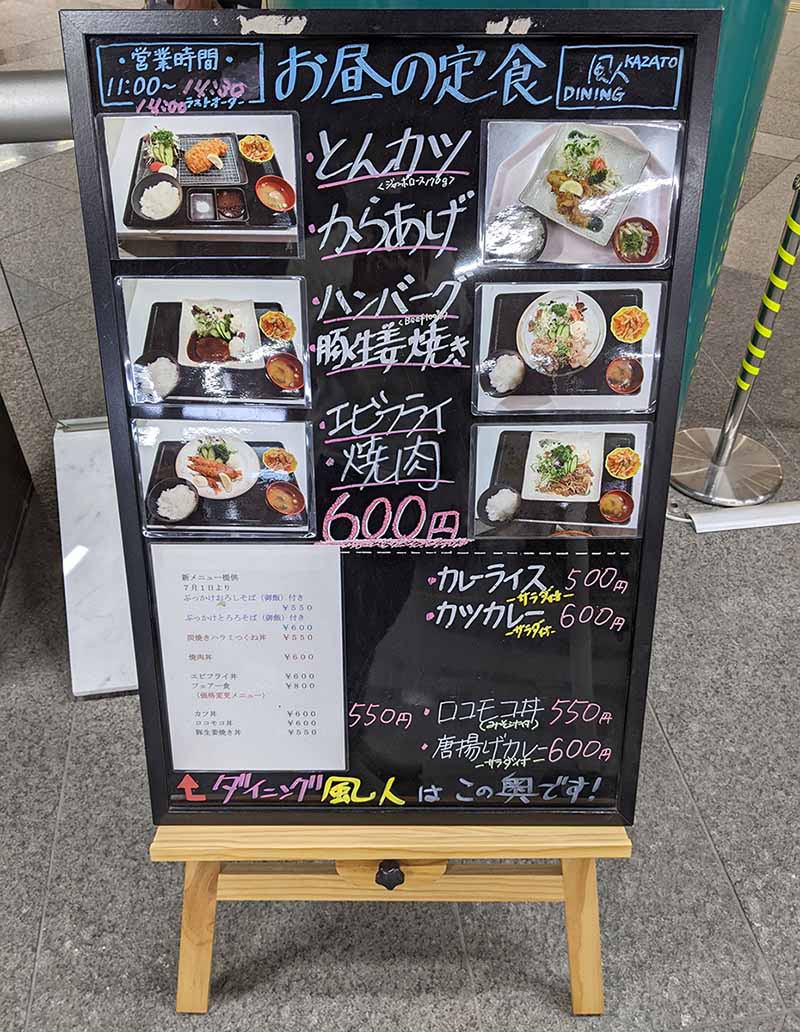 ・営業時間・
11:00〜14:30
14:00ラストオーダー
お昼の定食
風人KAZATO
DINING
・とんカツ
<ジャンボロース170g>
・からあげ
・ハンバーグ
・豚生姜焼き
・エビフライ
・焼肉
600円
新メニュー提供
7月1日より
ぶっかけおろしそば(御飯)付き
￥550
ぶっかけとろろそば(御飯)付き
￥600
炭焼きハラミつくね丼 ￥550
焼肉丼 ￥600
エビフライ丼 ￥600
フェアー食 ￥800
(価格変更メニュー)
カツ丼 ￥600
ロコモコ丼 ￥600
豚生姜焼き丼 ￥550
・カレーライス 500円
-サラダ付-
・カツカレー 600円
-サラダ付-
550円
・ロコモコ丼 550円
(みそ汁付)
・唐揚げカレー 600円
-サラダ付-
↑ダイニング風人はこの奥です!